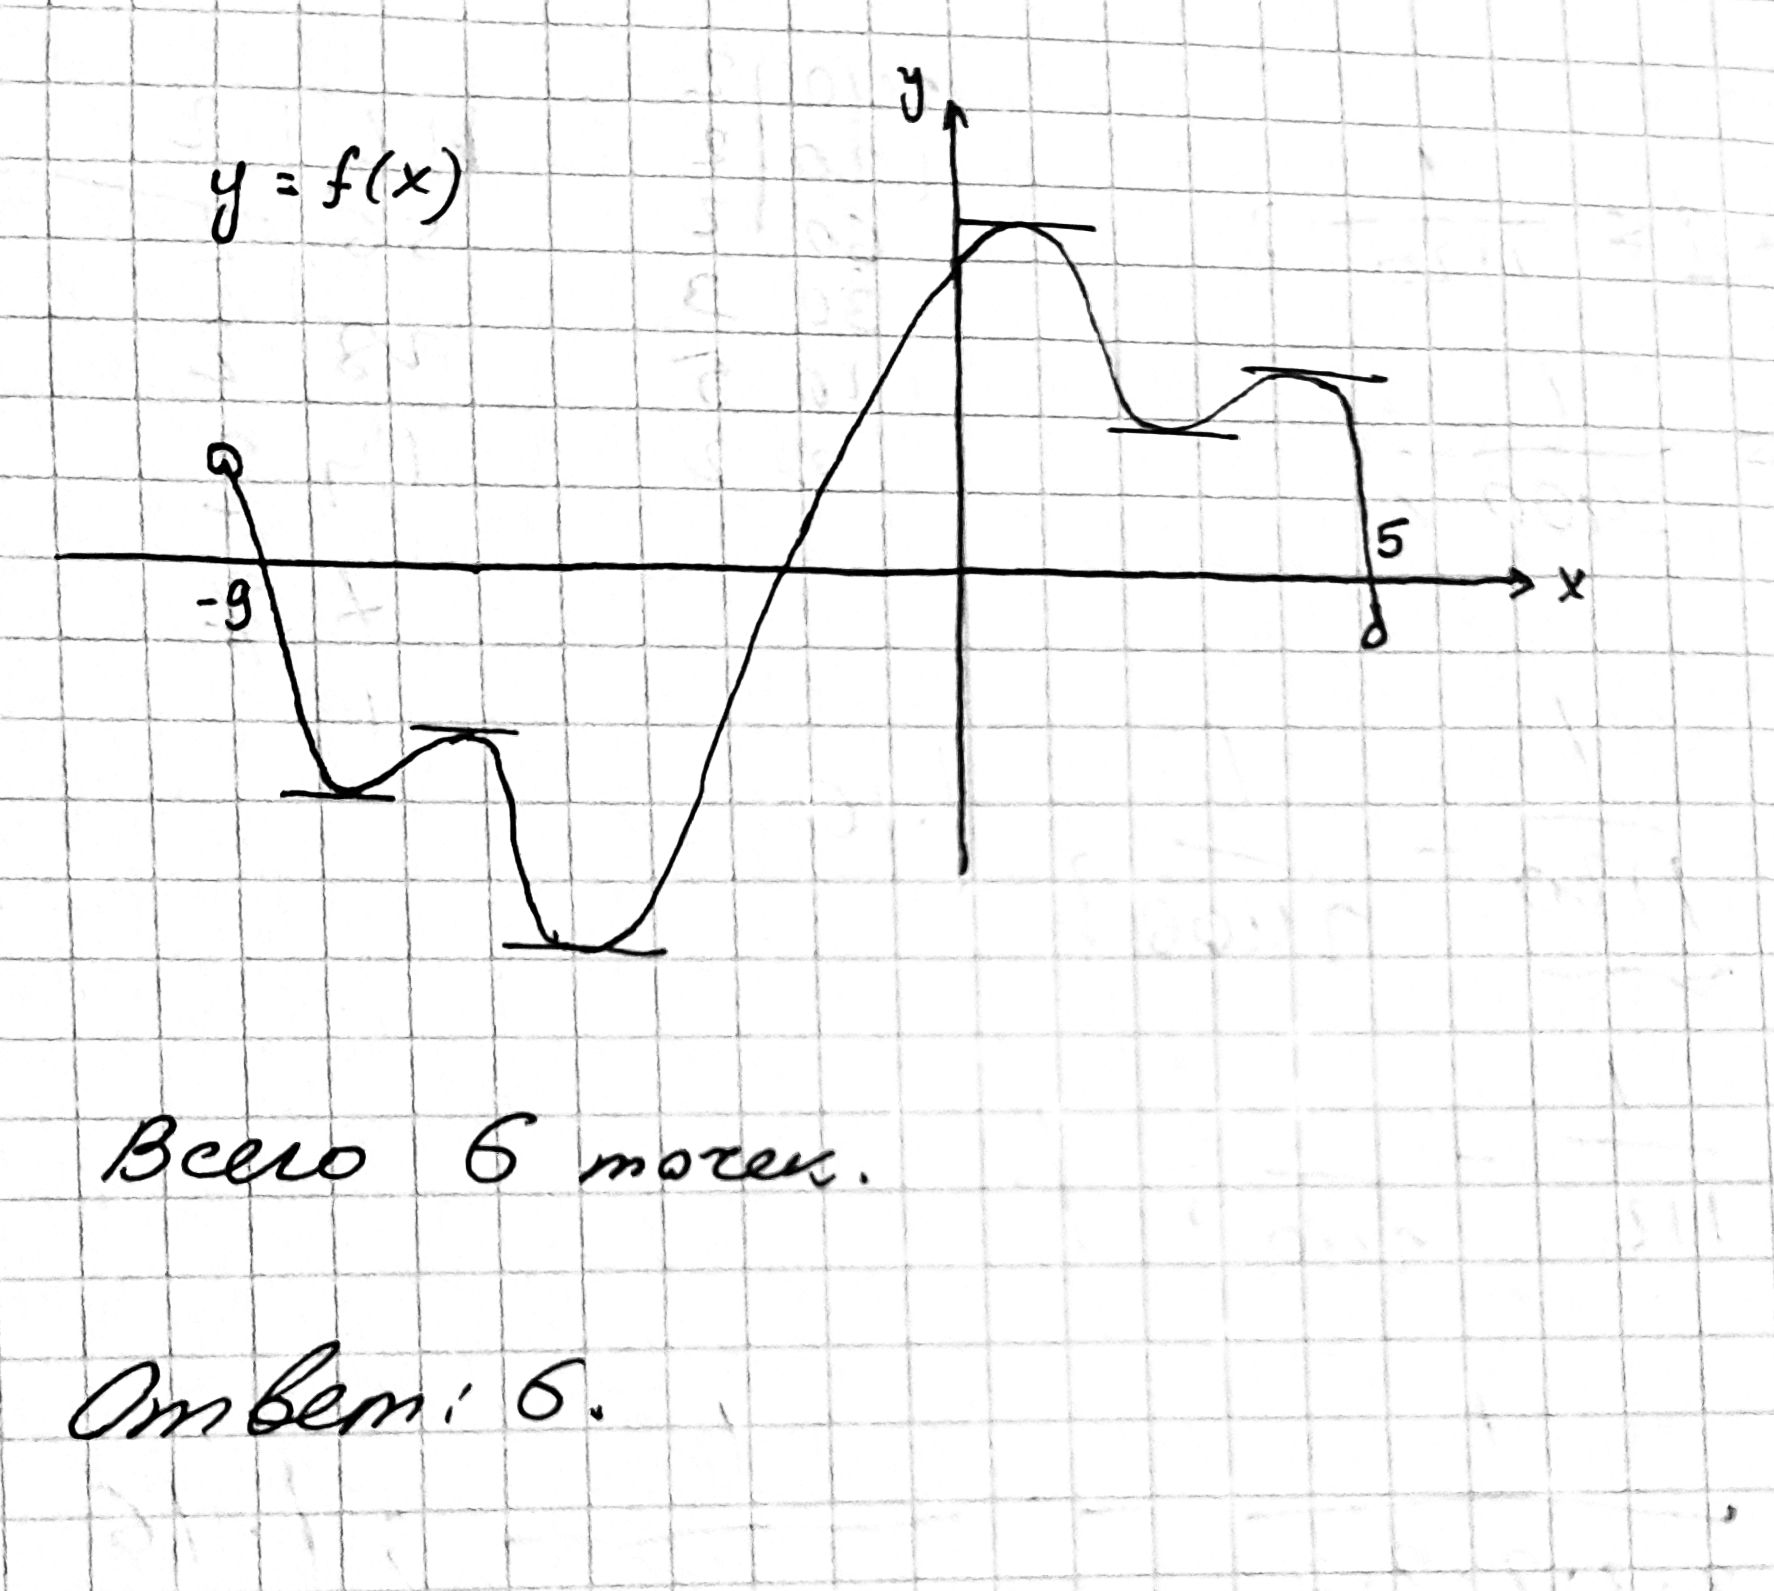 y
y = f(x)
5
x
-9
Всего 6 точек.
Ответ: 6.